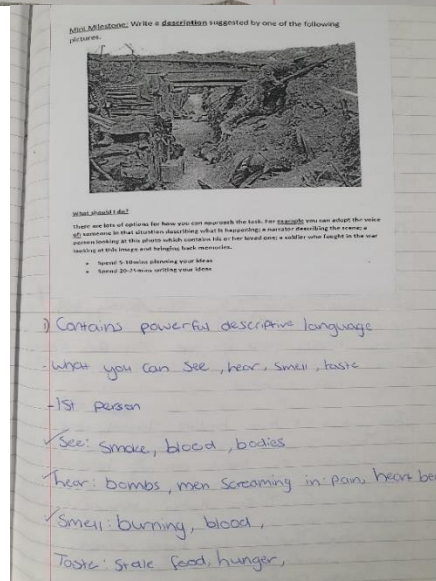 Mini Milestone: Write a description suggested by one of the following
pictures.
What should I do?
There are lots of options for how you can approach the task. For example you can adopt the voice
of: someone in that situation describing what is happening; a narrator describing the scene; a
person looking at this photo which contains his or her loved one; a soldier who fought in the war
looking at this image and bringing back memories.
• Spend 5-10mins planning your ideas
• Spend 20-25mins writing your ideas
1) Contains powerful descriptive language
- what you can see, hear, smell, taste
- 1st person
✓ See: smoke, blood, bodies
✓ hear: bombs, men screaming in pain, heart be
✓ Smell: burning, blood,
Taste: Stale food, hunger,